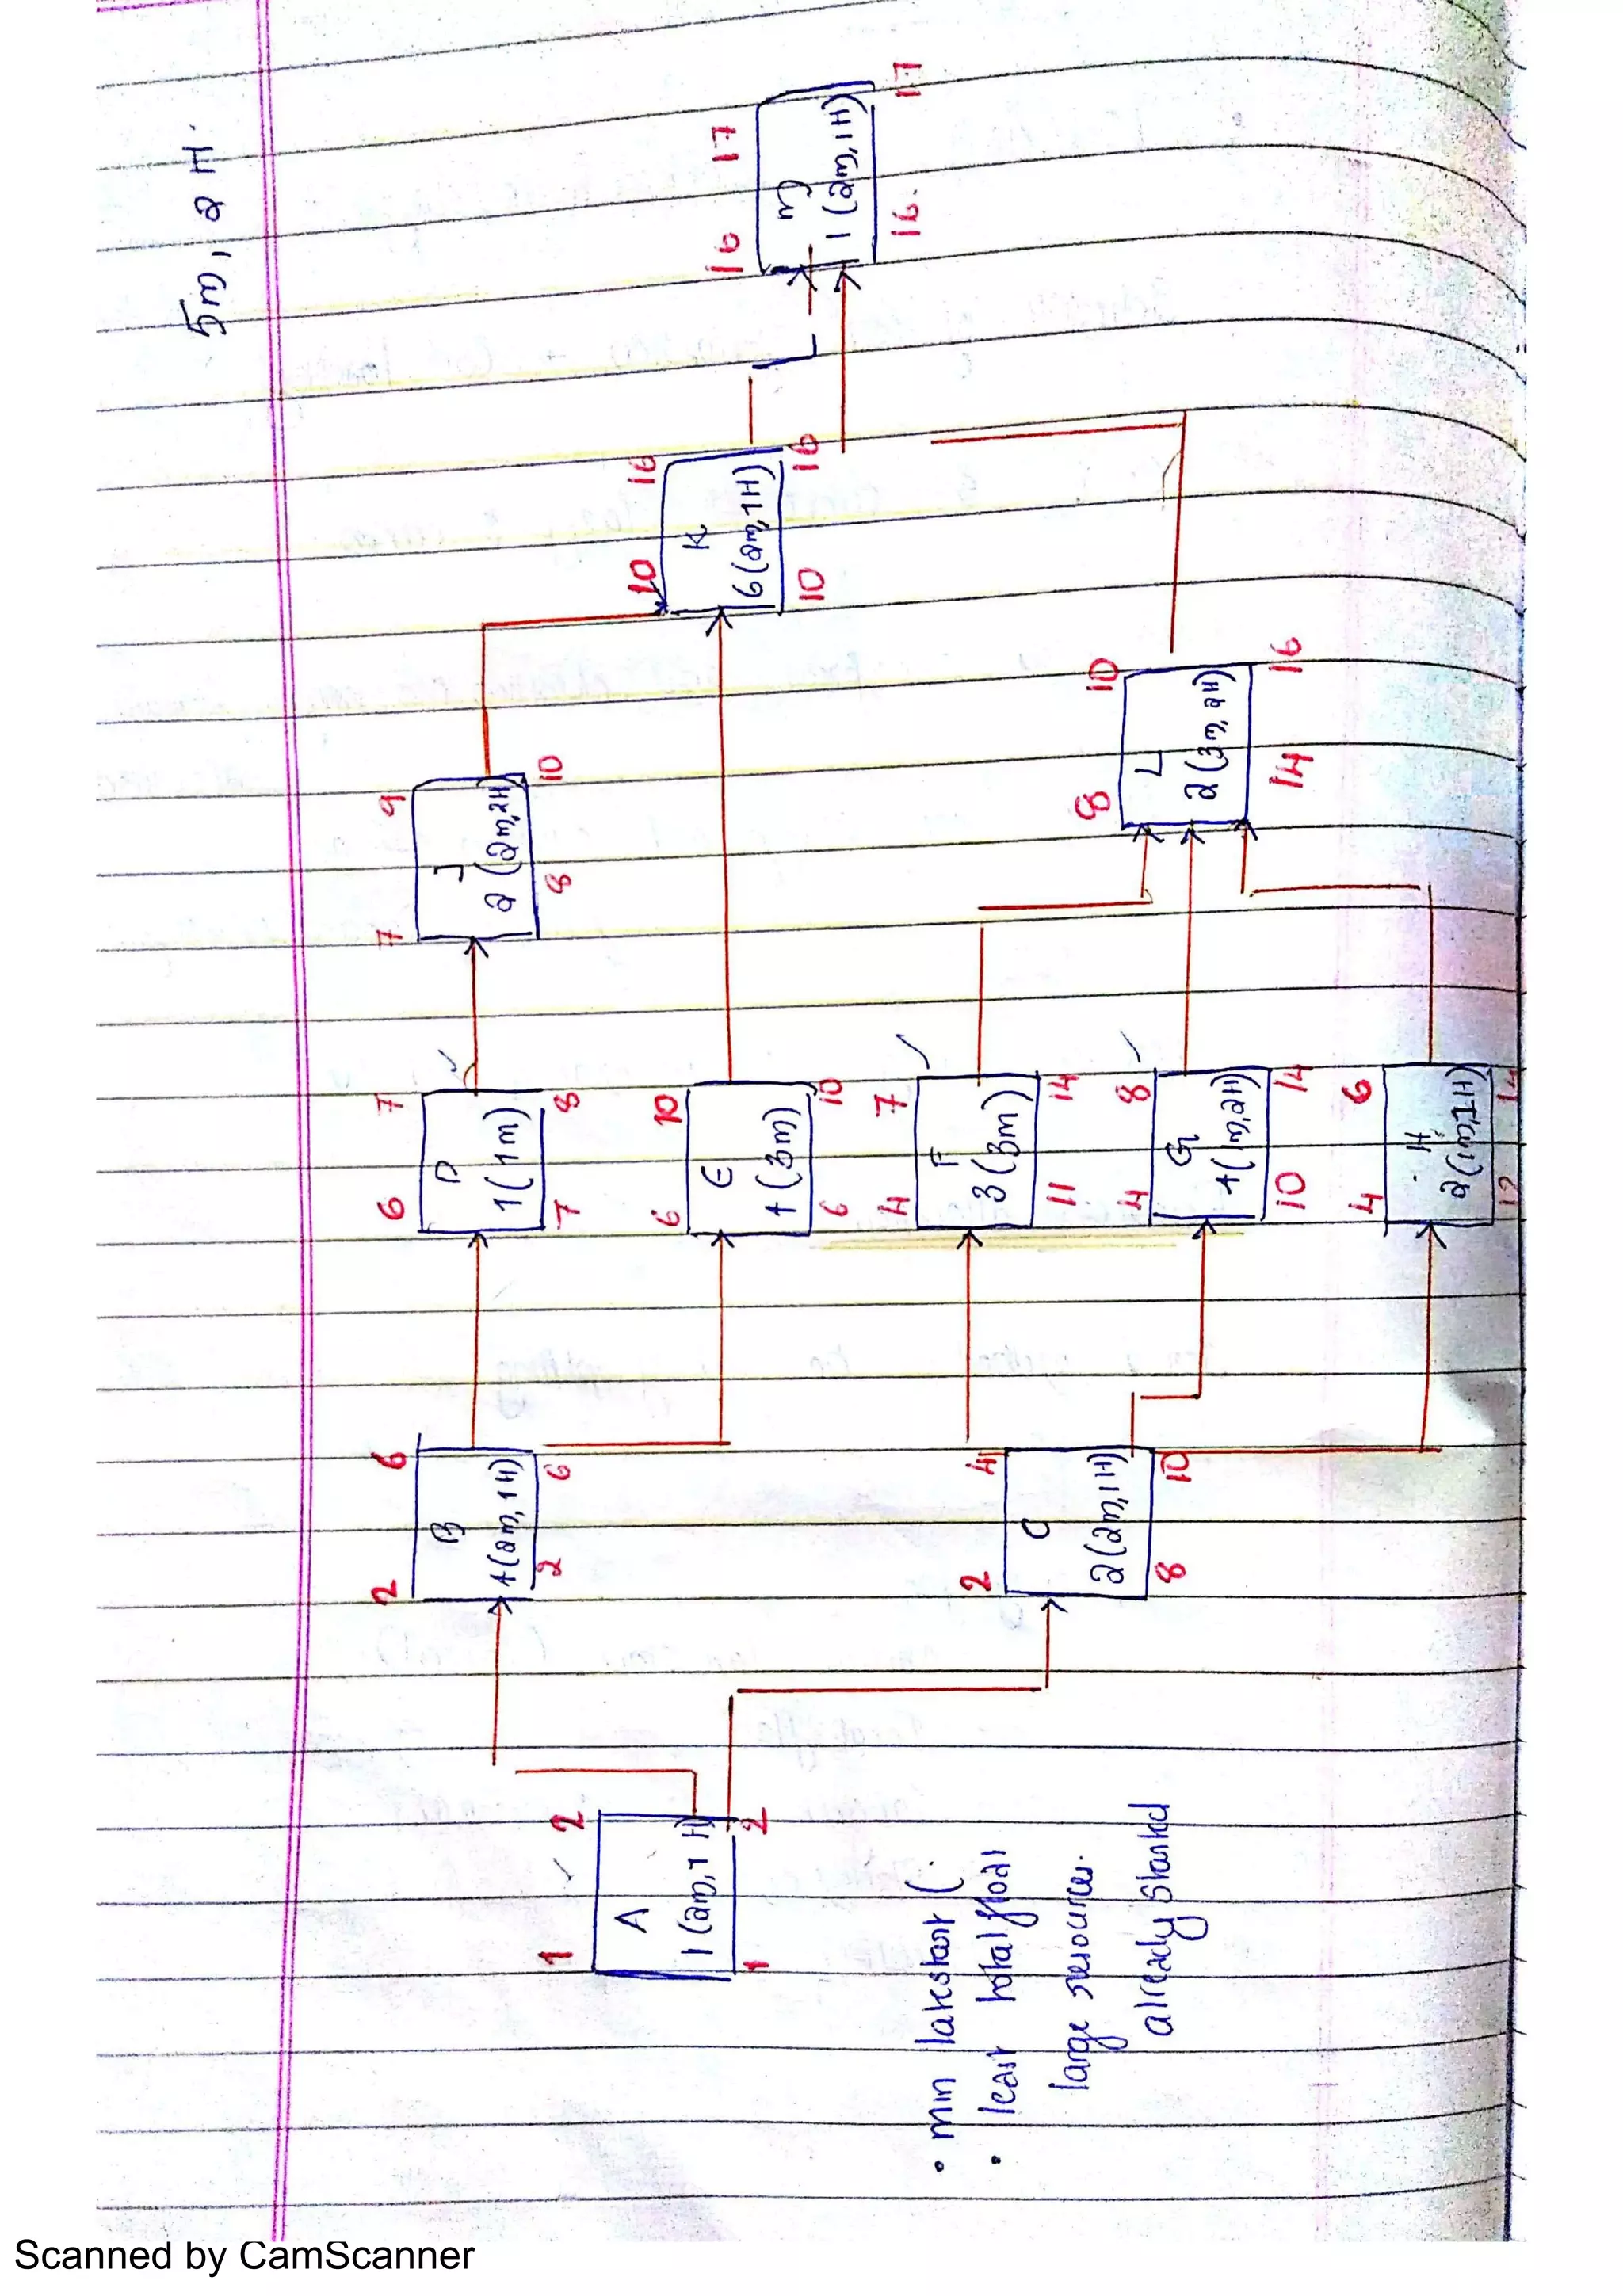 5m, 2H.
1 2
A
1(2m, 1H)
1 2
2 6
B
4(2m, 1H)
2 6
2 4
C
2(2m, 1H)
8 10
6 7
D
1(1m)
7 8
6 10
E
4(3m)
6 10
4 7
F
3(3m)
11 14
4 8
G
4(1m, 2H)
10 14
4 6
H
2(1m, 1H)
12 14
7 9
J
2(2m, 2H)
8 10
10 16
K
6(2m, 1H)
10 16
8 10
L
2(3m, 2H)
14 16
16 17
m
1(2m, 1H)
16. 17
• min latestart (
• least total float
large resource.
already started
Scanned by CamScanner